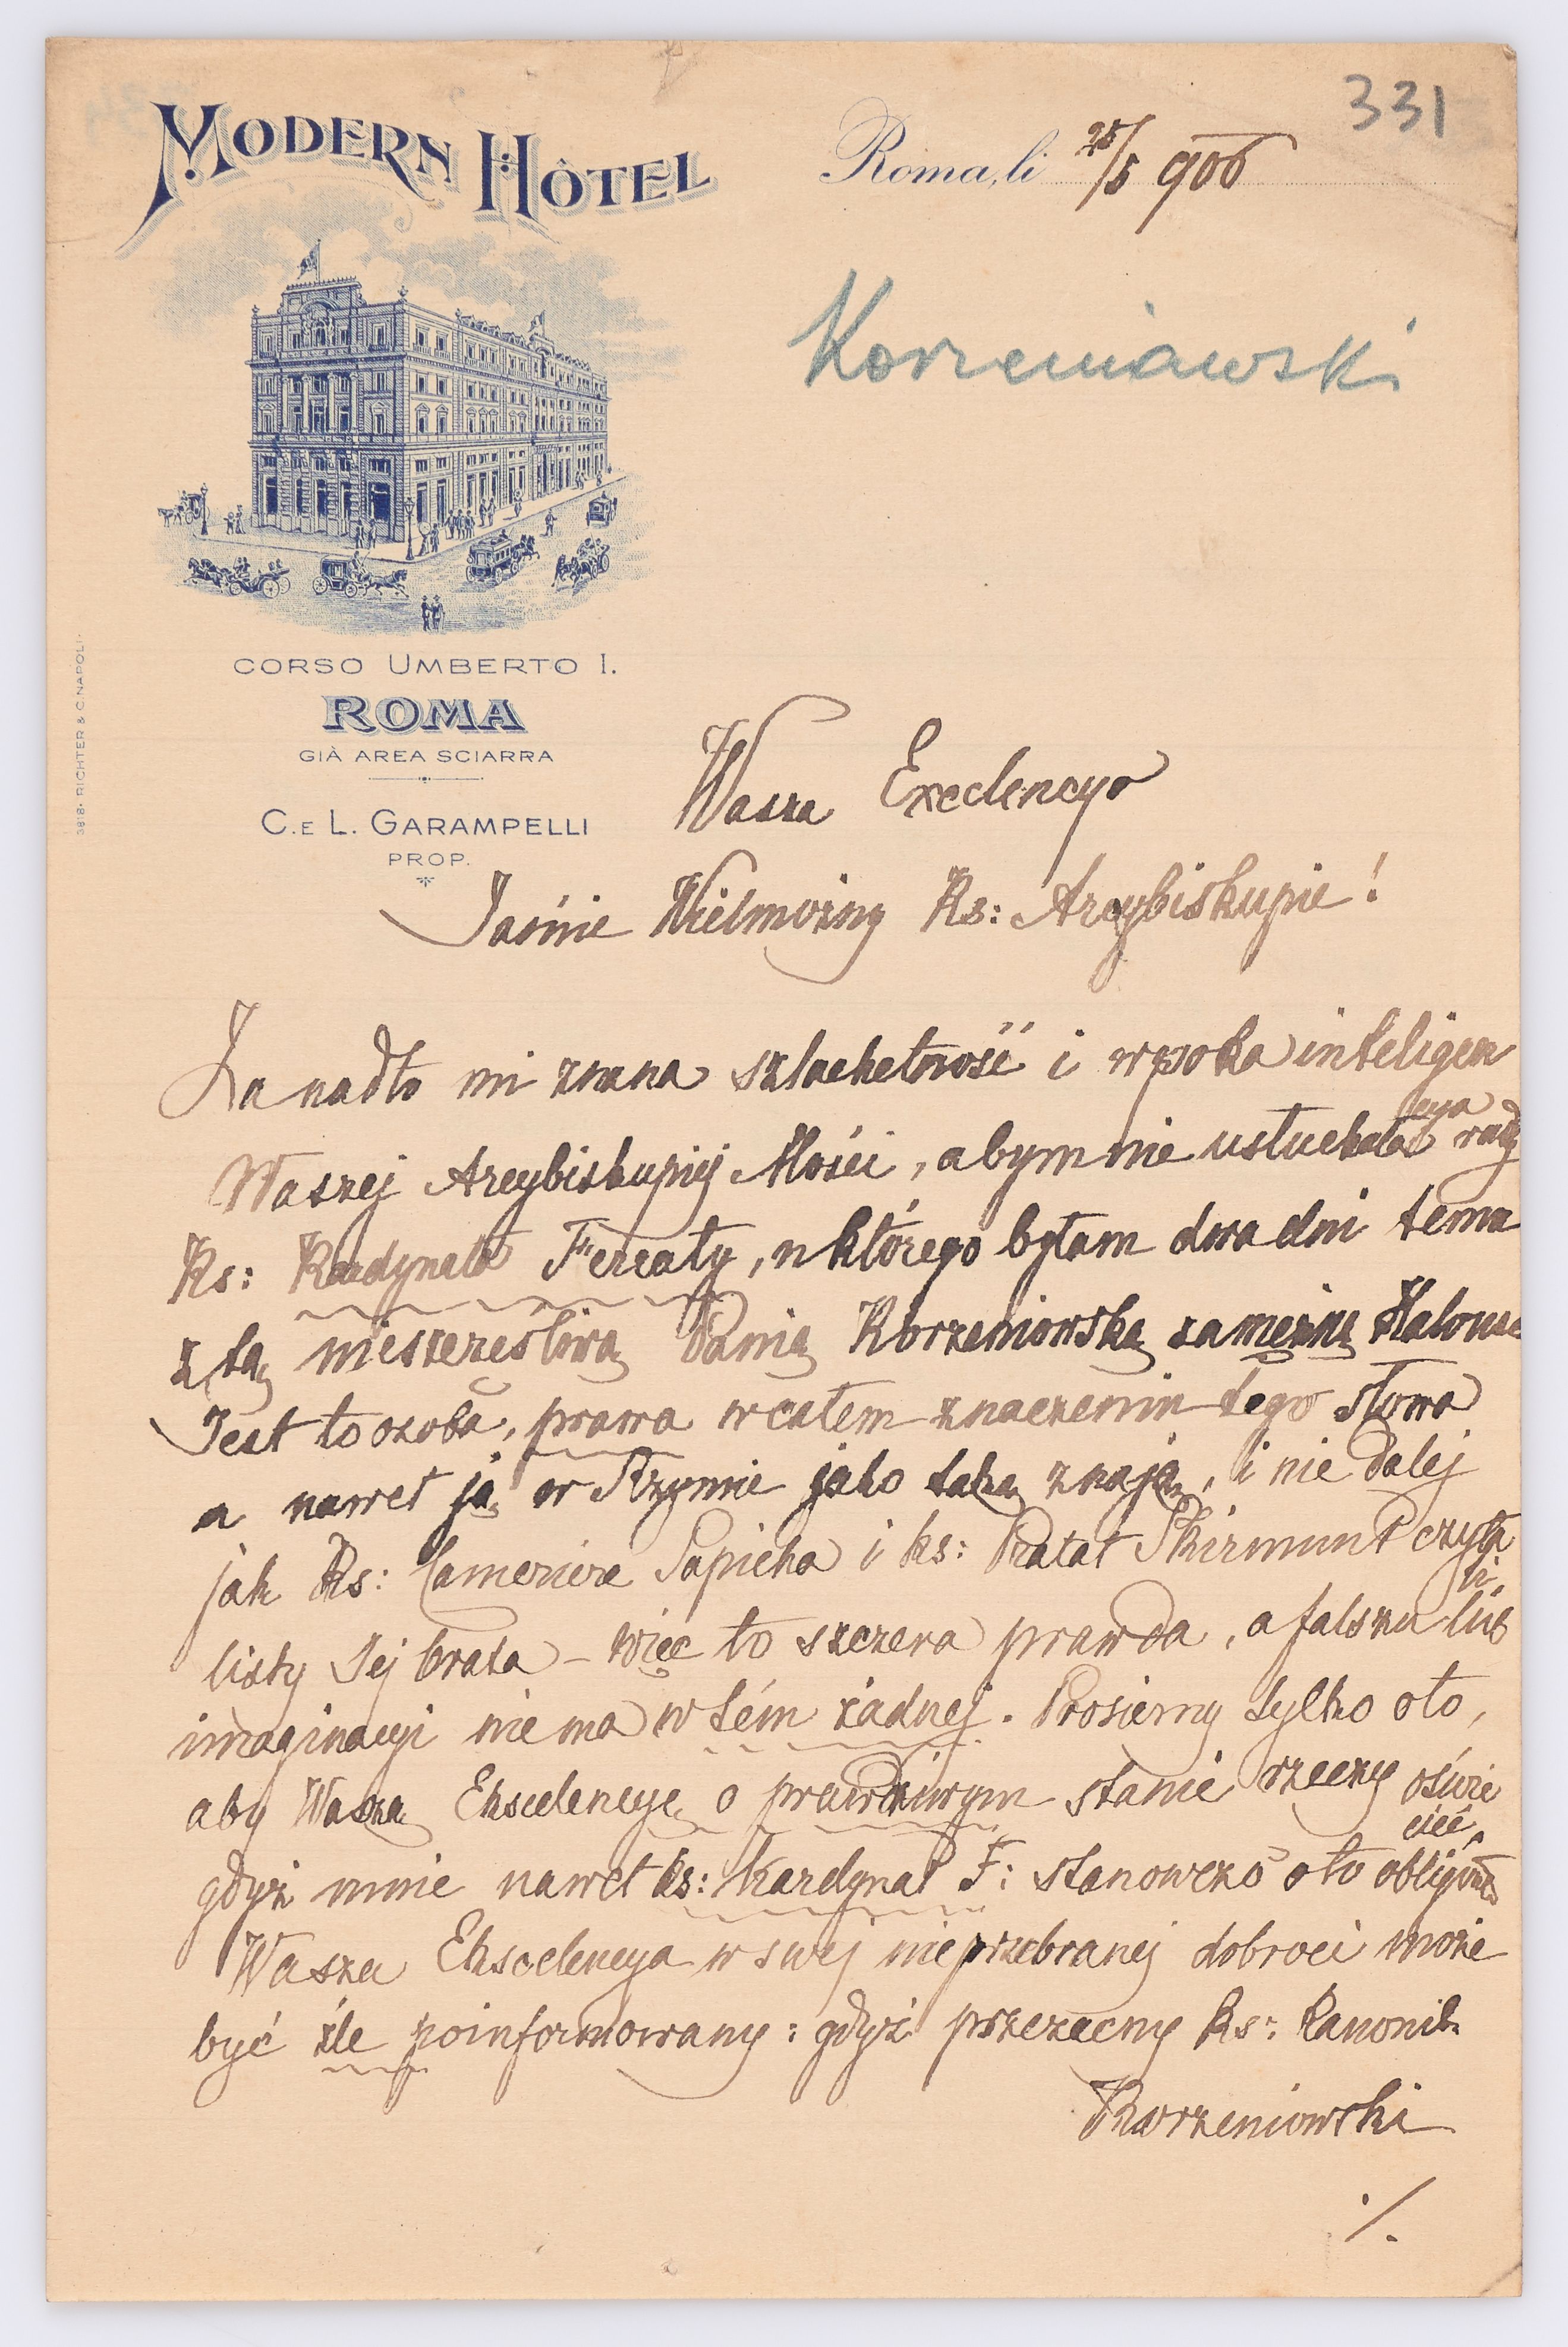 331
MODERN HÔTEL
Roma, li 25/5 906
Korzeniowski
CORSO UMBERTO I.
ROMA
GIÀ AREA SCIARRA
C. E L. GARAMPELLI
PROP.
3818 · RICHTER & C. NAPOLI ·
Wasza Excelencyo
Jaśnie Wielmożny Ks: Arcybiskupie!
Za nadto mi znana szlachetność i wysoka inteligen
cya
Waszej Arcybiskupiej Mości, abym nie usłuchała rady
Ks: Kardynała Ferraty, u którego byłam dwa dni temu
z tą nieszczęśliwą Panią Korzeniowską zamężną
Jest to osoba, prawa w całem znaczeniu tego słowa
a nawet ją w Rzymie jako taką znają, i nie dalej
jak Ks: Cameriere Sapieha i ks: Prałat Skirmunt czyta
li
listy Jej brata – więc to szczera prawda, a falszu lub
imaginacyi nie ma w tém żadnej. Prosiemy tylko oto,
aby Waszą Ekscelencyę o prawdziwym stanie rzeczy oświe
cić,
gdyż mnie nawet ks: Kardynał F: stanowczo oto obligował
Wasza Ekscelencya w swej nieprzebranej dobroci może
być źle poinformowany: gdyż przezacny ks: Kanonik
Korzeniowski
./.